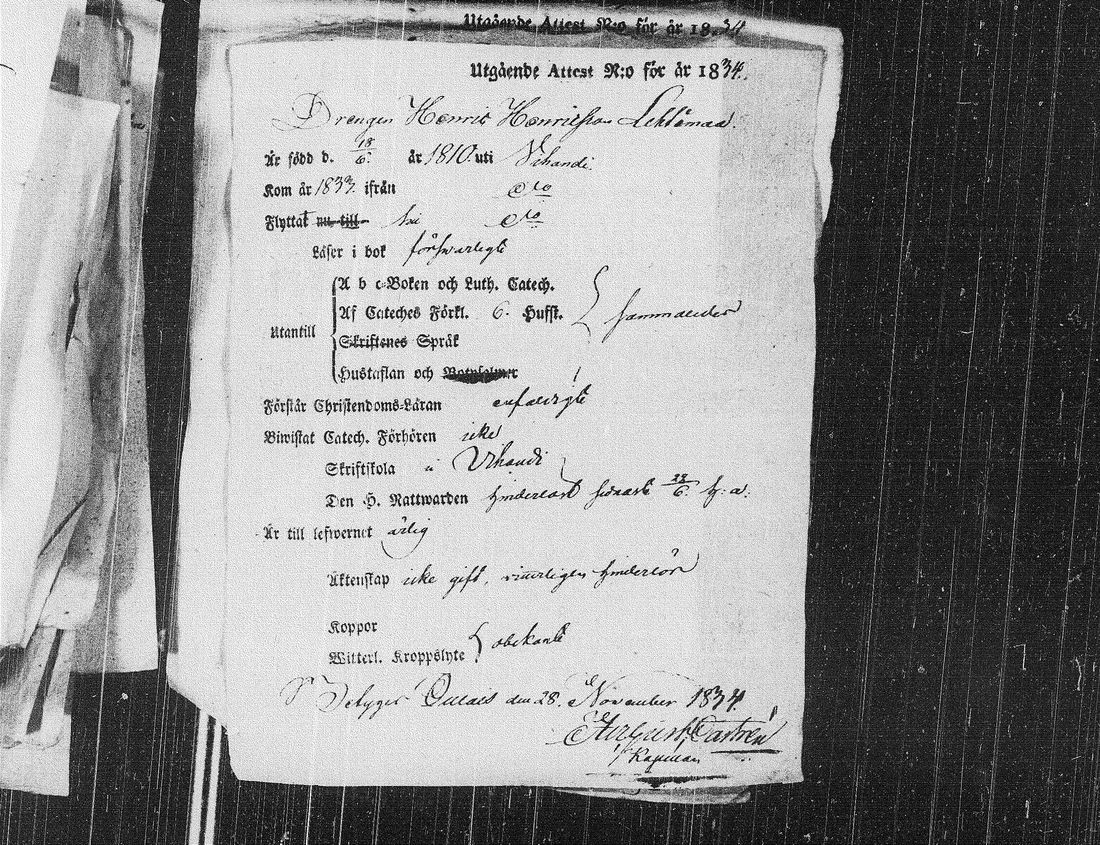 Utgående Attest N:o för år 1834
Utgående Attest N:o för år 1834.
Drengen Henric Henricsson Lehtomaa.
Är född d. 18/6. år 1810. uti Uhandi.
Kom år 1833. ifrån Dto
Flyttat nu till Dto
Läser i bok förswarligt
A b c-Boken och Luth. Catech.
Utantill Af Cateches Förkl. 6. Hufst. sammaledes
Skriftenes Språk
Hustaflan och Botpsalmer
Förstår Christendoms-Läran enfaldigt
Biwistat Catech. Förhören icke
Skriftskola i Uhandi
Den H. Nattwarden sednast 28/6. h: a:
Är till lefwernet ärlig
Äktenskap icke gift, hinderlös
Koppor
Witterl. Kroppslyte obekant
Betygar den 28. November 1834
August Castrén
Kapellan